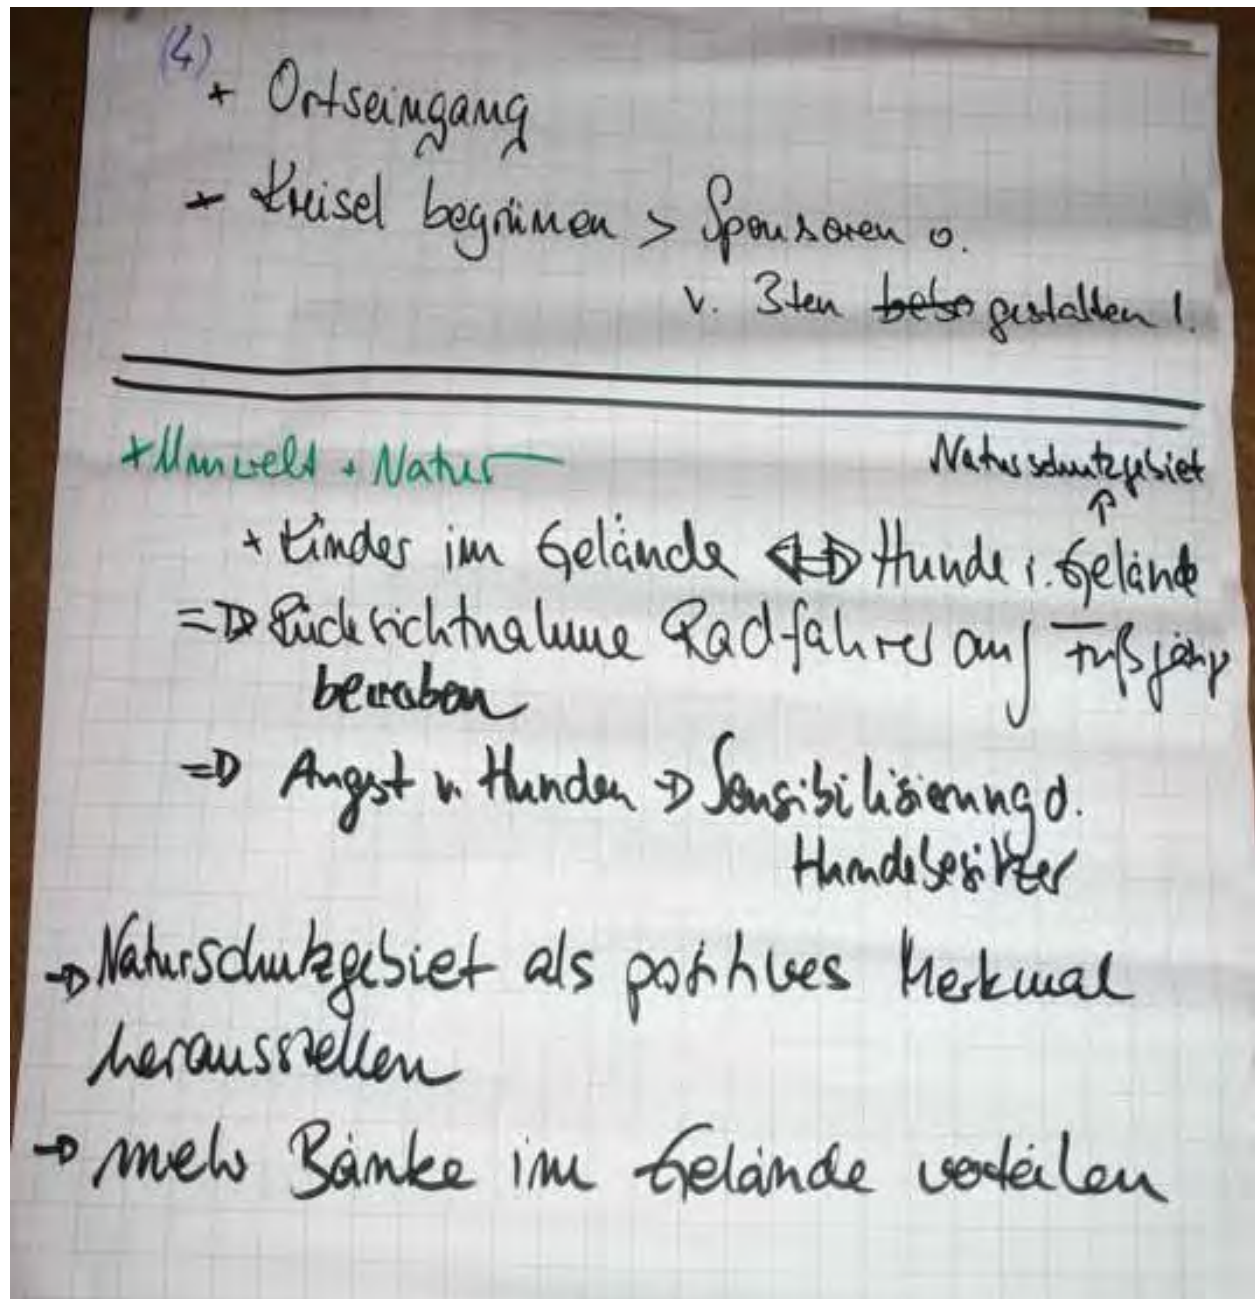 (4)
+ Ortseingang
+ Kreisel begrünen > Sponsoren o.
v. 3ten gestalten !
+ Umwelt + Natur
Naturschutzgebiet
↑
+ Kinder im Gelände <=> Hunde i. Gelände
=> Rücksichtnahme Radfahrer auf
=> Angst v. Hunden => Sensibilisierung d.
Hundebesitzer
-> Naturschutzgebiet als positives Merkmal
herausstellen
-> mehr Bänke im Gelände verteilen